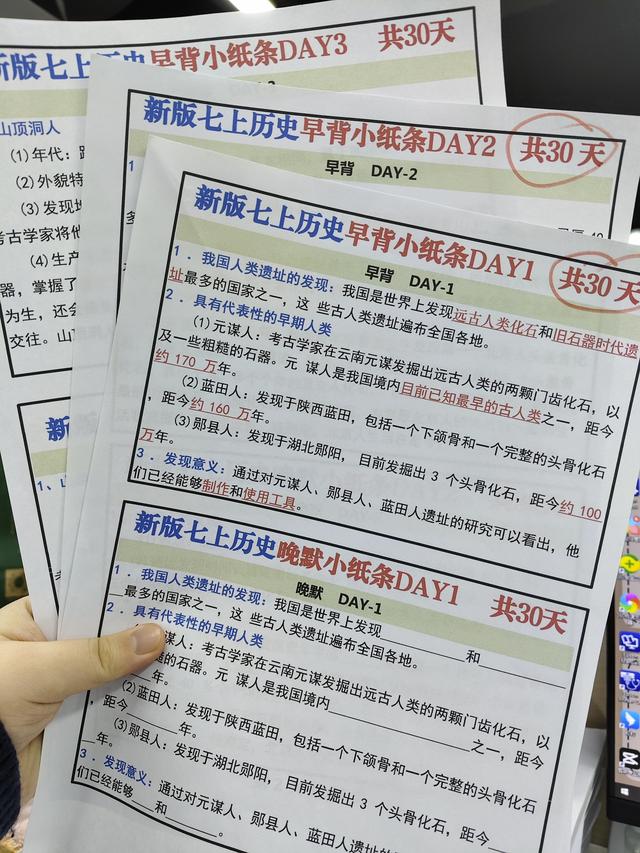 新版七上历史早背小纸条DAY3 共30天
山顶洞人
(1)年代:
(2)外貌特
(3)发现
考古学家将他
(4)生产
器,掌握了
为生,还会
交往。山
新版七上历史早背小纸条DAY2 共30天
早背 DAY-2
新版七上历史早背小纸条DAY1 共30天
早背 DAY-1
1.我国人类遗址的发现:我国是世界上发现远古人类化石和旧石器时代遗
址最多的国家之一,这 些古人类遗址遍布全国各地。
2.具有代表性的早期人类
(1)元谋人:考古学家在云南元谋发掘出远古人类的两颗门齿化石,以
及一些粗糙的石器。元 谋人是我国境内目前已知最早的古人类之一,距今
约 170 万年。
(2)蓝田人:发现于陕西蓝田,包括一个下颌骨和一个完整的头骨化石
,距今约 160 万年。
(3)郧县人:发现于湖北郧阳,目前发掘出 3 个头骨化石,距今约 100
万年。
3.发现意义:通过对元谋人、郧县人、蓝田人遗址的研究可以看出,他
们已经能够制作和使用工具。
新版七上历史晚默小纸条DAY1 共30天
晚默 DAY-1
1.我国人类遗址的发现:我国是世界上发现__________和__________
__最多的国家之一,这 些古人类遗址遍布全国各地。
2.具有代表性的早期人类
谋人:考古学家在云南元谋发掘出远古人类的两颗门齿化石,以
糙的石器。元 谋人是我国境内__________________之一,距今
____年。
(2)蓝田人:发现于陕西蓝田,包括一个下颌骨和一个完整的头骨化石
,距今______年。
(3)郧县人:发现于湖北郧阳,目前发掘出 3 个头骨化石,距今____
__年。
3.发现意义:通过对元谋人、郧县人、蓝田人遗
们已经能够____和________。